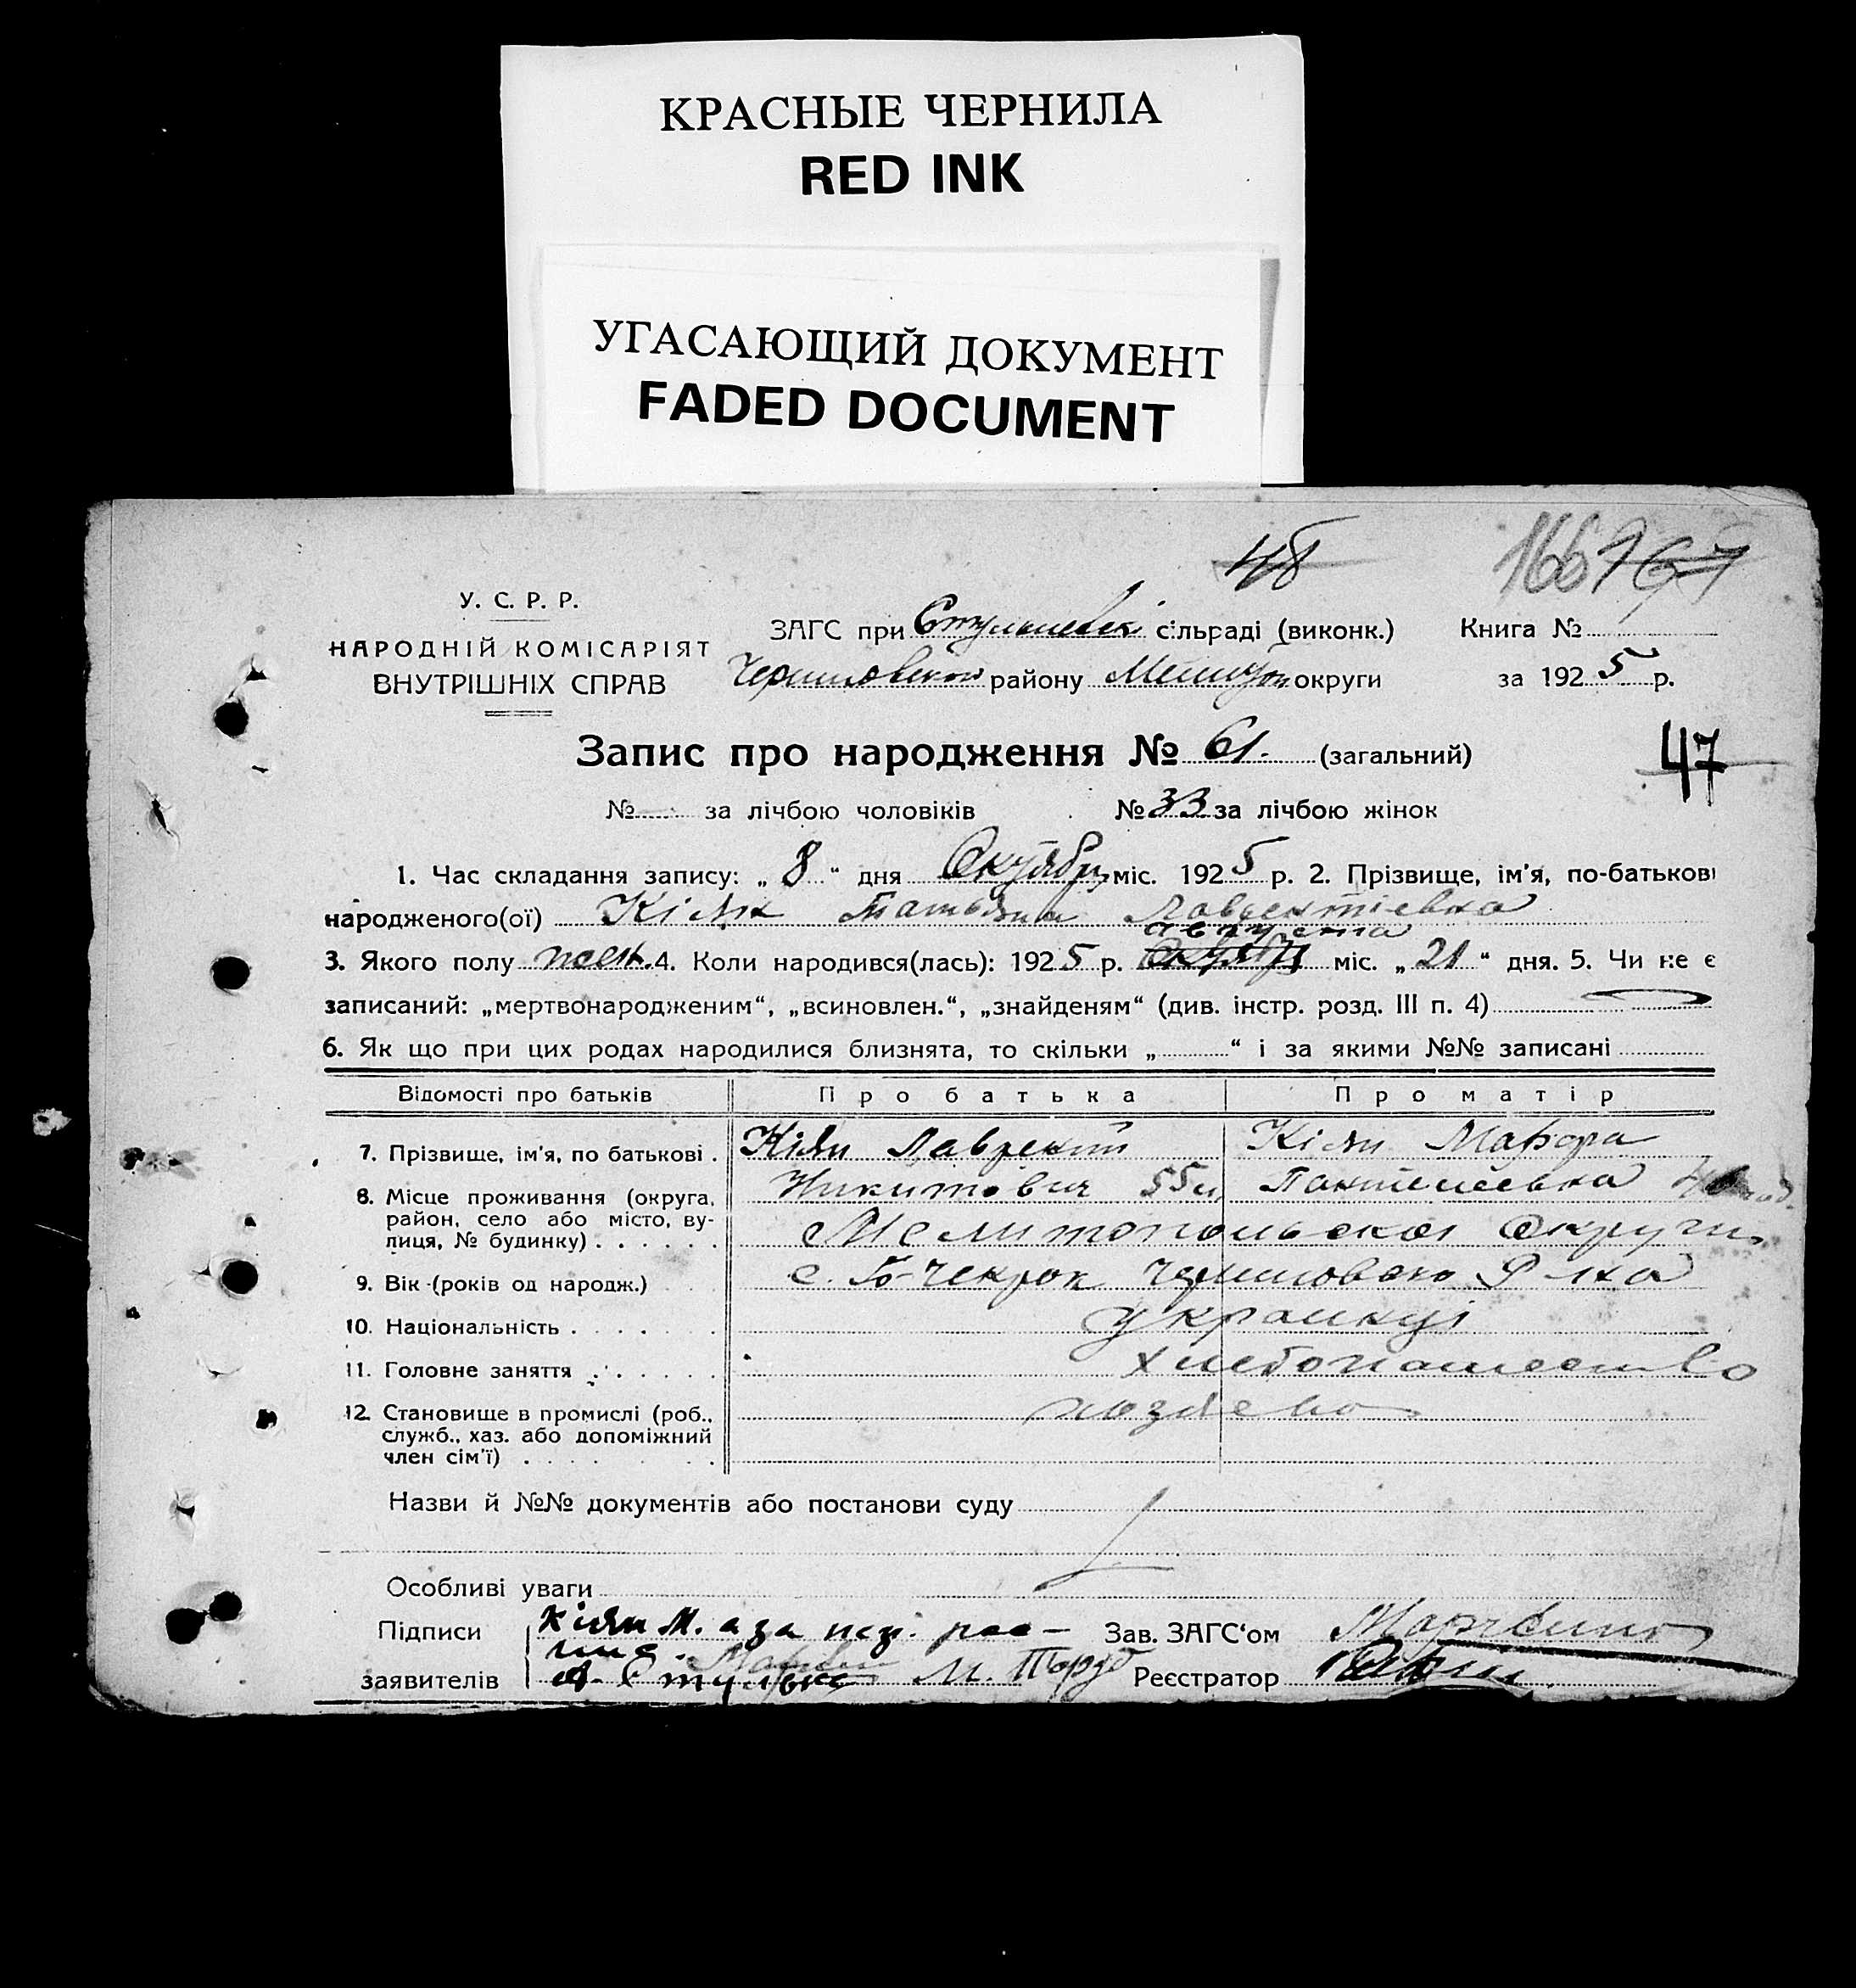 КРАСНЫЕ ЧЕРНИЛА
RED INK
УГАСАЮЩИЙ ДОКУМЕНТ
FADED DOCUMENT
48
166 167
У. С. Р. Р.
НАРОДНІЙ КОМІСАРІЯТ
ВНУТРІШНІХ СПРАВ
ЗАГС при сільраді (виконк.) Книга №
району округи за 1925 р.
Запис про народження № 61. (загальний)
47
№ за лічбою чоловіків № 33 за лічбою жінок
1. Час складання запису: „8“ дня Октября міс. 1925 р. 2. Прізвище, ім'я, по-батькові
народженого(ої) Кіян Татьяна Лаврентіевна
августа
3. Якого полу жен. 4. Коли народився(лась): 1925 р. Октября міс. „21“ дня. 5. Чи не є
записаний: „мертвонародженим“, „всиновлен.“, „знайденям“ (див. інстр. розд. III п. 4)
6. Як що при цих родах народилися близнята, то скільки „ “ і за якими №№ записані
Відомості про батьків Про батька Про матір
7. Прізвище, ім'я, по батькові. Кіян Лаврентий Кіян Марфа
Никитович 55 Пантелеевна
8. Місце проживання (округа, район, село або місто, вулиця, № будинку) Мелитопольской Округи
9. Вік (років од народж.) с. Чекрак Р-на
10. Національність украинці
11. Головне заняття хлебопашество
12. Становище в промислі (роб., служб., хаз. або допоміжний член сім'ї)
Назви й №№ документів або постанови суду
Особливі уваги
Підписи Кіян М. а за Зав. ЗАГС'ом
заявителів М. Реєстратор